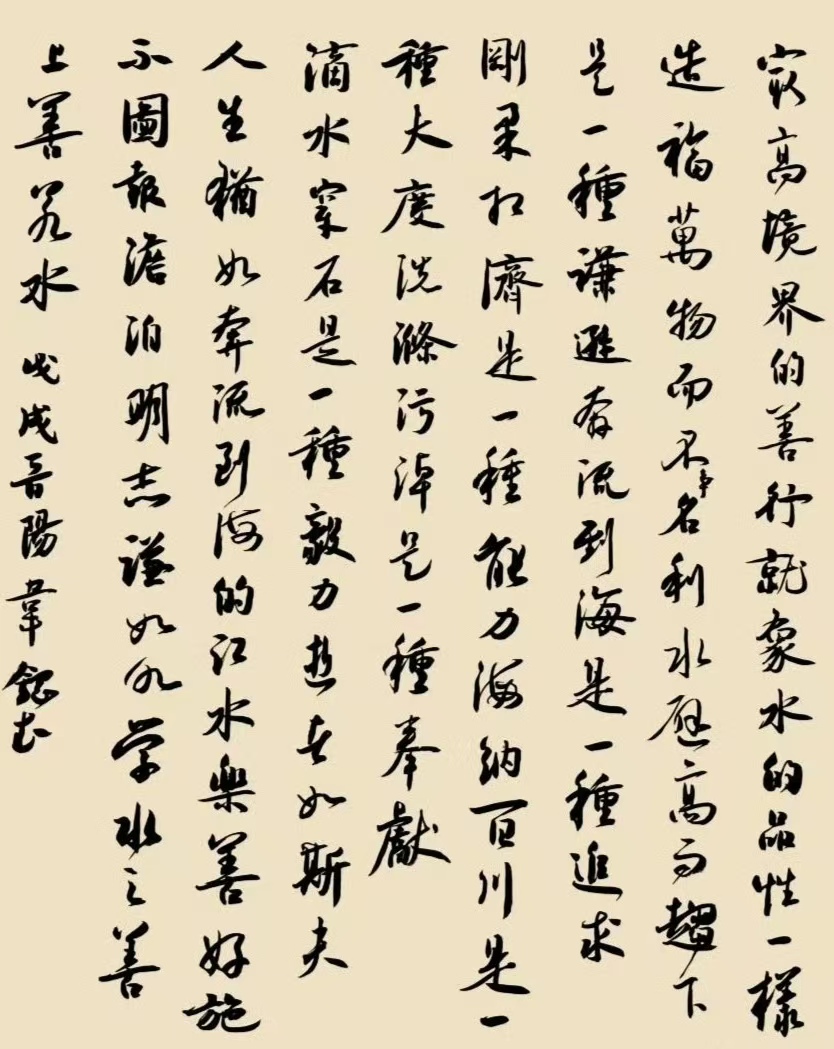 最高境界的善行就象水的品性一樣
造福萬物而不爭名利水處高而趨下
是一種謙遜奔流到海是一種追求
剛柔相濟是一種能力海納百川是一
種大度洗滌污淖是一種奉獻
滴水穿石是一種毅力逝者如斯夫
人生猶如奔流到海的江水樂善好施
不圖報澹泊明志謙如水學水之善
上善若水 戊戌晉陽韋